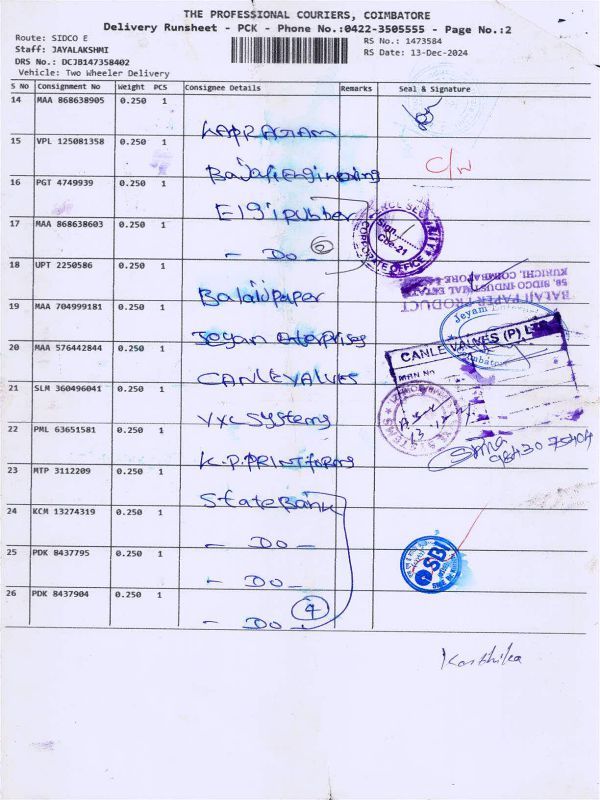 THE PROFESSIONAL COURIERS, COIMBATORE
Delivery Runsheet - PCK - Phone No.:0422-3505555 - Page No.:2
Route: SIDCO E
RS No.: 1473584
Staff: JAYALAKSHMI
RS Date: 13-Dec-2024
DRS No.: DCJB147358402
Vehicle: Two Wheeler Delivery
S No Consignment No Weight PCS Consignee Details Remarks Seal & Signature
14 MAA 868638905 0.250 1
15 VPL 125081358 0.250 1 C/W
Balaji Engineering
16 PGT 4749939 0.250 1
Elgi rubber
17 MAA 868638603 0.250 1
- Do - 2
CORPORATE OFFICE
18 UPT 2250586 0.250 1
Balaji paper
BALAJI PAPER PRODUCT
58, SIDCO INDUSTRIAL ESTATE
KURICHI, COIMBATORE
19 MAA 704999181 0.250 1
Jeyam Enterprises
Jeyam
Coimbatore
20 MAA 576442844 0.250 1
CANLE VALVES
CANLE VALVES (P) LTD
21 SLM 360496041 0.250 1
VXL Systems
22 PML 63651581 0.250 1
K.P. PRINT forms
98430 75404
23 MTP 3112209 0.250 1
State Bank
24 KCM 13274319 0.250 1
- Do -
25 PDK 8437795 0.250 1
- Do -
SBI
26 PDK 8437904 0.250 1
- Do - 4
Karthika